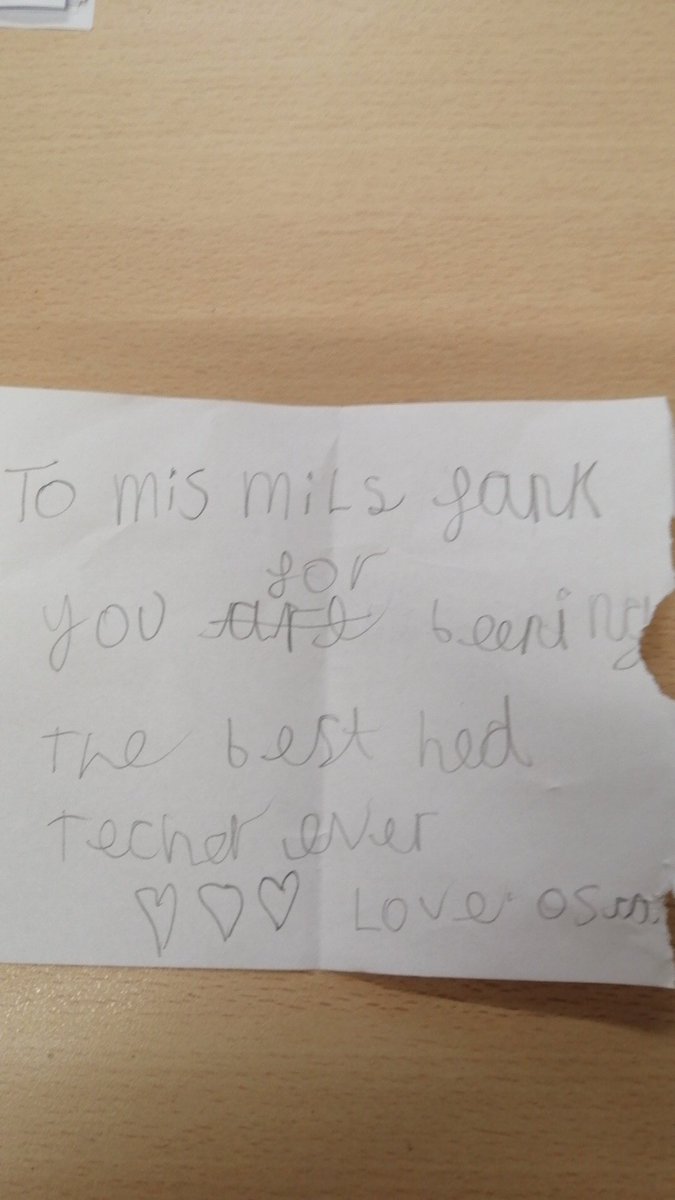 To mis mils fank
for
you are beening
the best hed
techer ever
Love